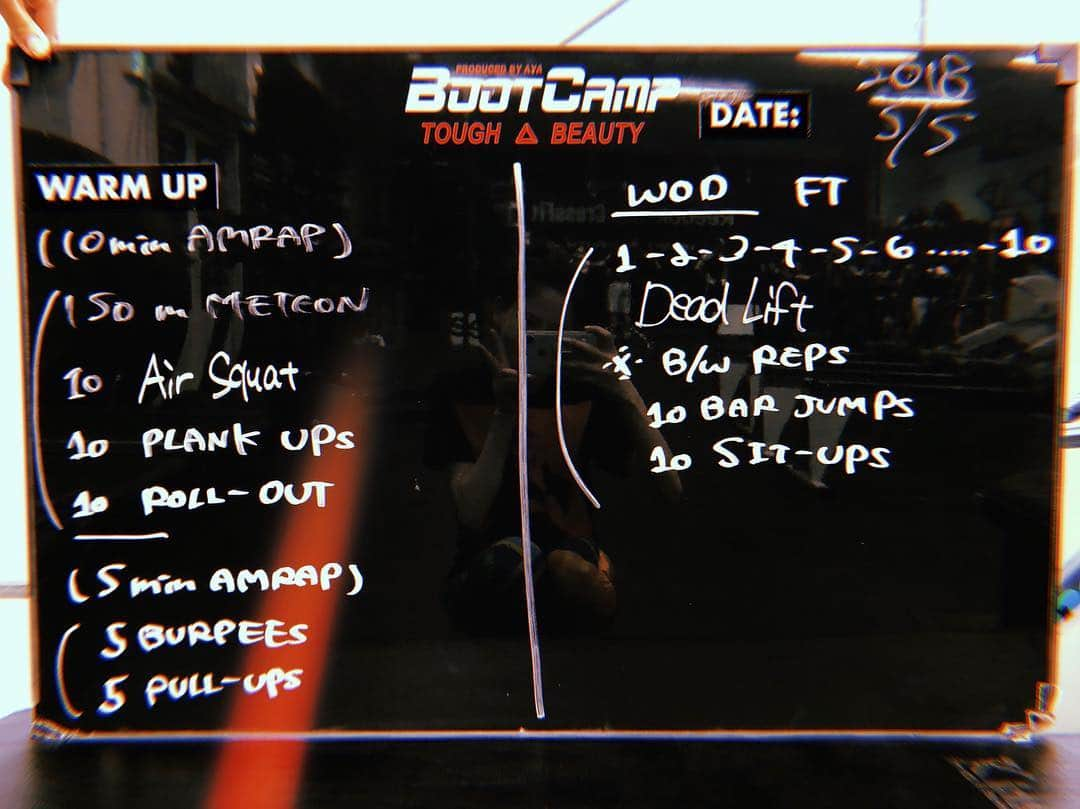 PRODUCED BY AYA
BOOTCAMP
TOUGH BEAUTY
DATE:
2018
5/5
WARM UP
(10 min AMRAP)
150 m METCON
10 Air Squat
10 PLANK UPS
10 ROLL-OUT
(5 min AMRAP)
5 BURPEES
5 PULL-UPS
WOD FT
1-2-3-4-5-6....-10
Dead Lift
※ B/W REPS
10 BAR JUMPS
10 SIT-UPS